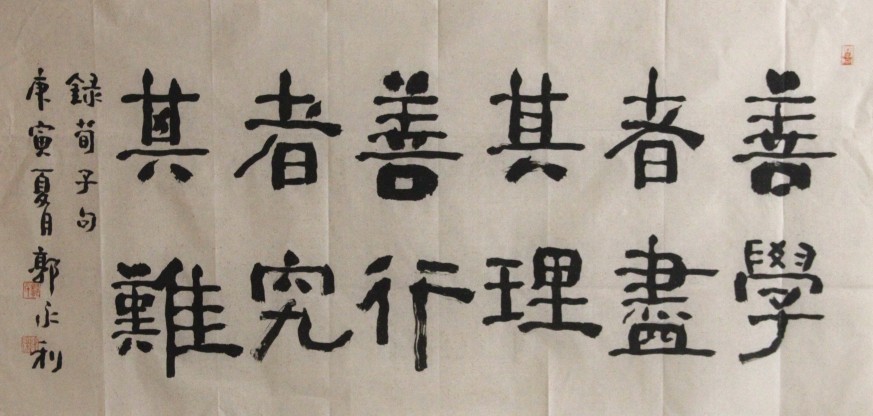 善學
者盡
其理
善行
者究
其難
録荀子句
庚寅夏月郭永利